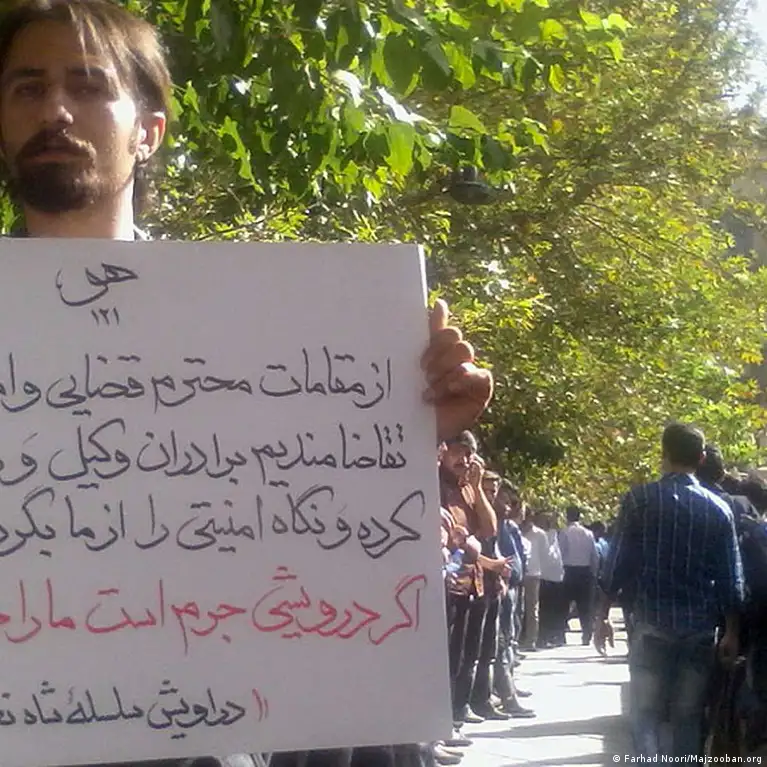 هو
۱۲۱
از مقامات محترم قضایی و
تقاضامندیم برادران وکیل و
کرده و نگاه امنیتی را از ما
اگر درویشی جرم است ما را
دراویش سلسلهٔ شاه
© Farhad Noori/Majzooban.org